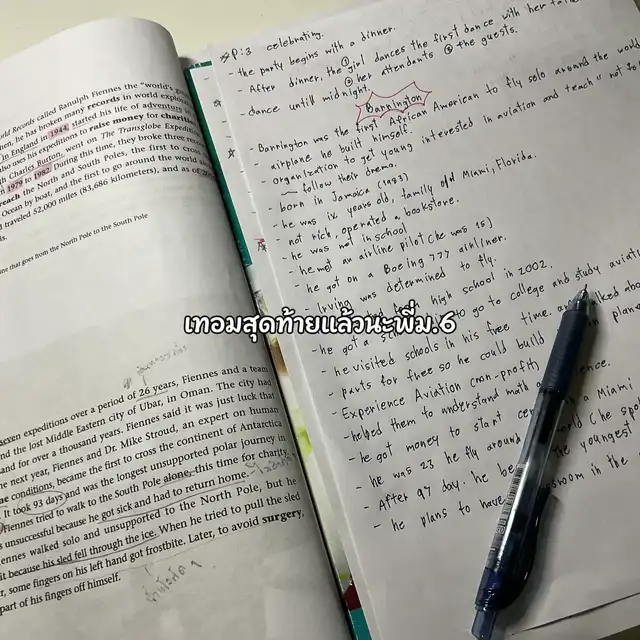 World Records called Ranulph Fiennes the "world's
then, he has broken many records in world
in England in 1944, started his life of adventure
also uses his expeditions to raise money for
Charles Burton, went on The Transglobe
1979 to 1982 During this time, they broke three
reach the North and South Poles, the first to cross
Ocean by boat, and the first to go around the world
traveled 52,000 miles (83,686 kilometers), and as of
line that goes from the North Pole to the South Pole
seven expeditions over a period of 26 years, Fiennes and a team
found the lost Middle Eastern city of Ubar, in Oman. The city had
sand for over a thousand years. Fiennes said it was just luck that
the next year, Fiennes and Dr. Mike Stroud, an expert on human
conditions, became the first to cross the continent of Antarctica
It took 93 days and was the longest unsupported polar journey in
Fiennes tried to walk to the South Pole alone, this time for charity.
unsuccessful because he got sick and had to return home.
Fiennes walked solo and unsupported to the North Pole, but he
it because his sled fell through the ice. When he tried to pull the sled
some fingers on his left hand got frostbite. Later, to avoid surgery,
part of his fingers off himself.
P.3 celebrating.
- the party begins with a dinner.
- After dinner, the ① girl dances the first dance with her
② her attendants ③ the guests.
- dance untill midnight
Barrington
- Barrington was the first African American to fly solo around the world
airplane he built himself.
- organization to get young interested in aviation and teach
follow their drems.
- born in Jamaica (1983)
- he was ix years old, family old Miami, Florida.
- not rich, operated a bookstore.
- he was not in school
- he met an airline pilot (he was 15)
- he got on a Boeing 777 airliner.
- Irving was determined to fly.
high school in 2002.
- he got a to go to college and study
- he visited schools in his free time.
- parts for free so he could build plane
- Experience Aviation (non-profit)
- helped them to understand math science.
- he got money to start a Miami
- he was 23 he fly around world
- After 97 day. he the youngest
- he plans to have in the
เทอมสุดท้ายแล้วนะพี่ม.6